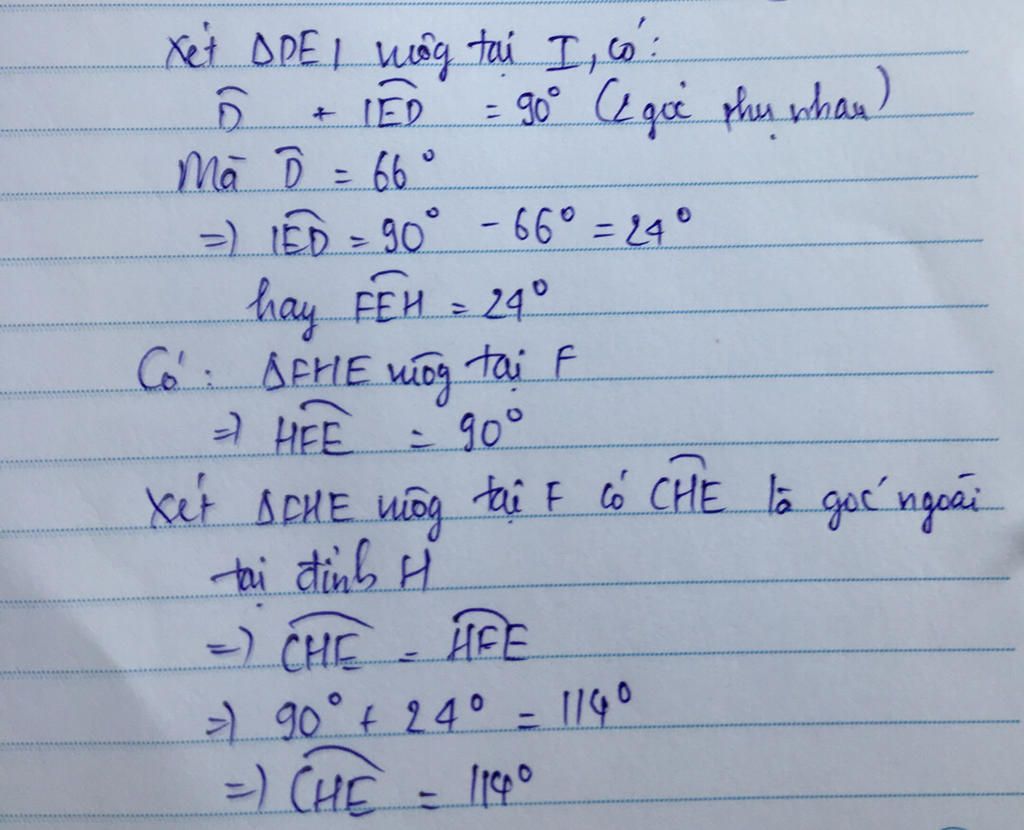 Xét ΔDEI vuông tại I, có:
D̂ + IÊD = 90° (2 góc phụ nhau)
Mà D̂ = 66°
=) IÊD = 90° - 66° = 24°
hay FÊH = 24°
Có: ΔFHE vuông tại F
=) HF̂E = 90°
Xét ΔFHE vuông tại F có CĤE là góc ngoài
tại đỉnh H
=) CĤE = HF̂E
=) 90° + 24° = 114°
=) CĤE = 114°